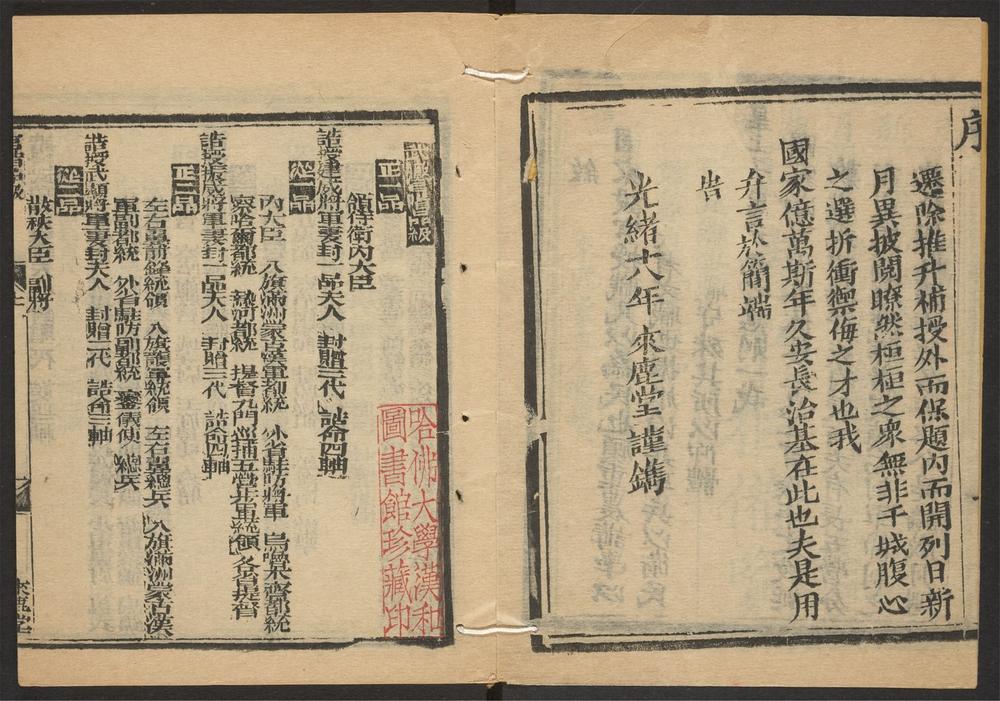 序
選除推升補授外而保題內而開列日新
月異披閱瞭然桓桓之衆無非干城腹心
之選折衝禦侮之才也我
國家億萬斯年久安長治基在此也夫是用
弁言於簡端
告
光緒十八年 來塵堂謹鐫
哈佛大學漢和
圖書館珍藏印
正一品
領侍衛內大臣
誥授建威將軍妻封一品夫人 封贈三代 誥命四軸
從一品
內大臣 八旗滿洲蒙古漢軍都統 外省駐防將軍 烏嚕木齊都統
察哈爾都統 熱河都統 提督九門巡捕五營步軍統領 各省提督
誥授振威將軍妻封一品夫人 封贈三代 誥命四軸
正二品
左右翼前鋒統領 八旗護軍統領 左右翼總兵 八旗滿洲蒙古漢
軍副都統 外省駐防副都統 鑾儀使 總兵
誥授武顯將軍妻封夫人 封贈二代 誥命三軸
從二品
散秩大臣 副將